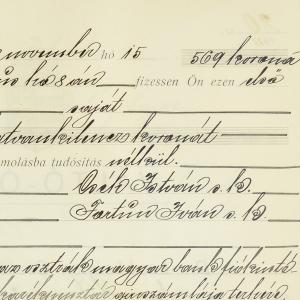 november hó 15 569 korona
házán fizessen Ön ezen első
saját
hatvankilencz koronát
ámolásba tudósitás nélkül.
Csek István s.k.
Fortün Iván s.k.
az osztrák magyar bank fiókinté